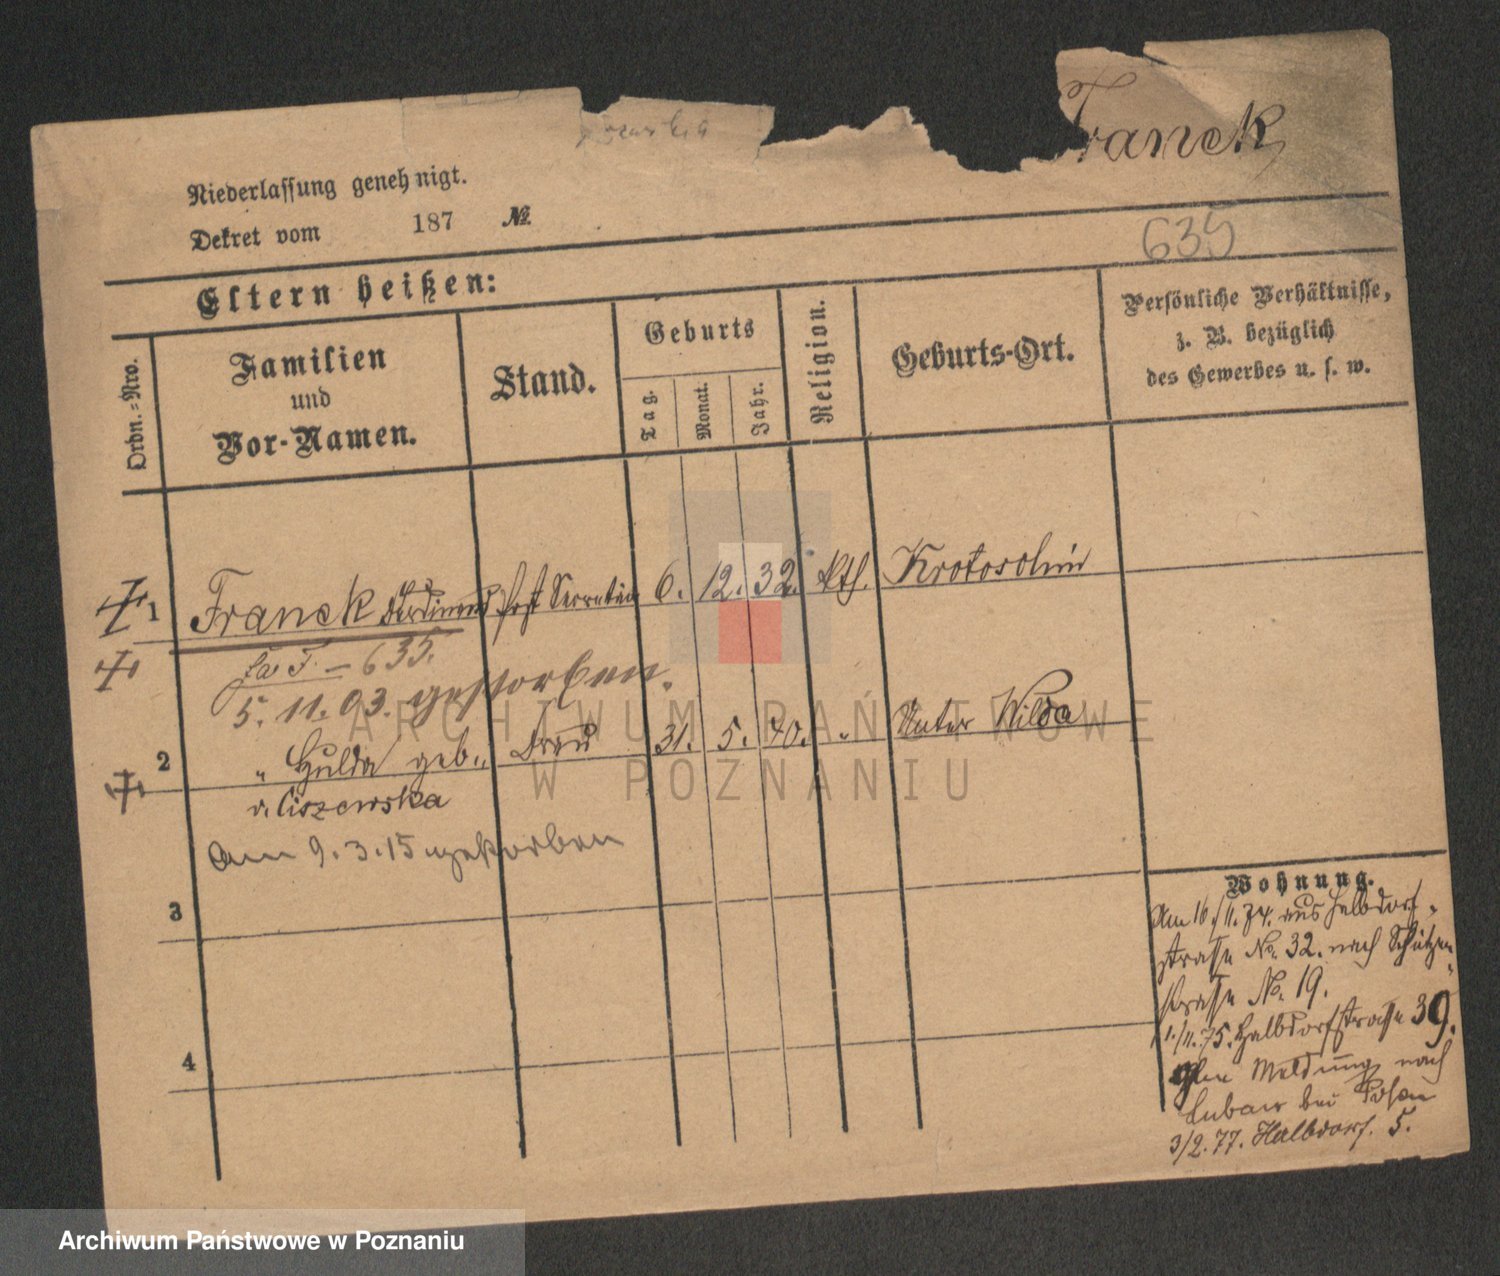 Franck
Niederlassung genehmigt.
Dekret vom 187 №
635
Eltern heißen:
Ordn.=Nro.
Familien
und
Vor-Namen.
Stand.
Geburts
Tag.
Monat.
Jahr.
Religion.
Geburts-Ort.
Persönliche Verhältnisse,
z. B. bezüglich
des Gewerbes u. s. w.
1 Franck Ferdinand Post Secretair 6. 12. 32. kth. Krotoschin
F. — 635.
5. 11. 03. gestorben.
2 " Hulda geb. Frau 31. 5. 40. " Unter Wilda
v. Ciszewska
Am 9. 3. 15 gestorben
3
4
Wohnung.
Am 16/11. 74. aus Halbdorf-
strasse No. 32. nach Schützen-
strasse No. 19.
1./11. 75. Halbdorfstrasse 39.
Meldung nach
Luban bei Posen
3/2. 77. Halbdorf. 5.
ARCHIWUM PAŃSTWOWE
W POZNANIU
Archiwum Państwowe w Poznaniu